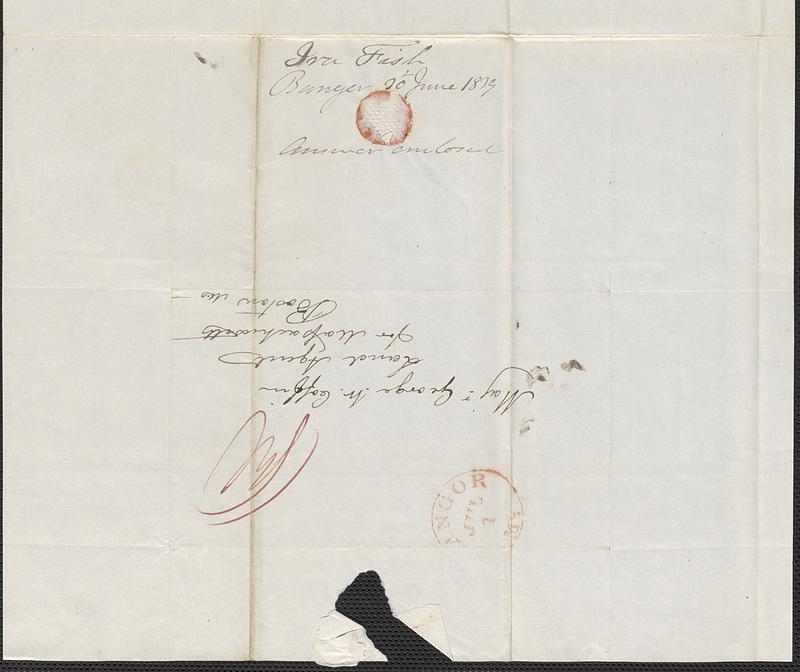 Ira Fish
Bangor 30 June 1839
Answer enclosed
Majr George W. Coffin
Land Agent
for Massachusetts
Boston Ms
ANGOR
JUL
1